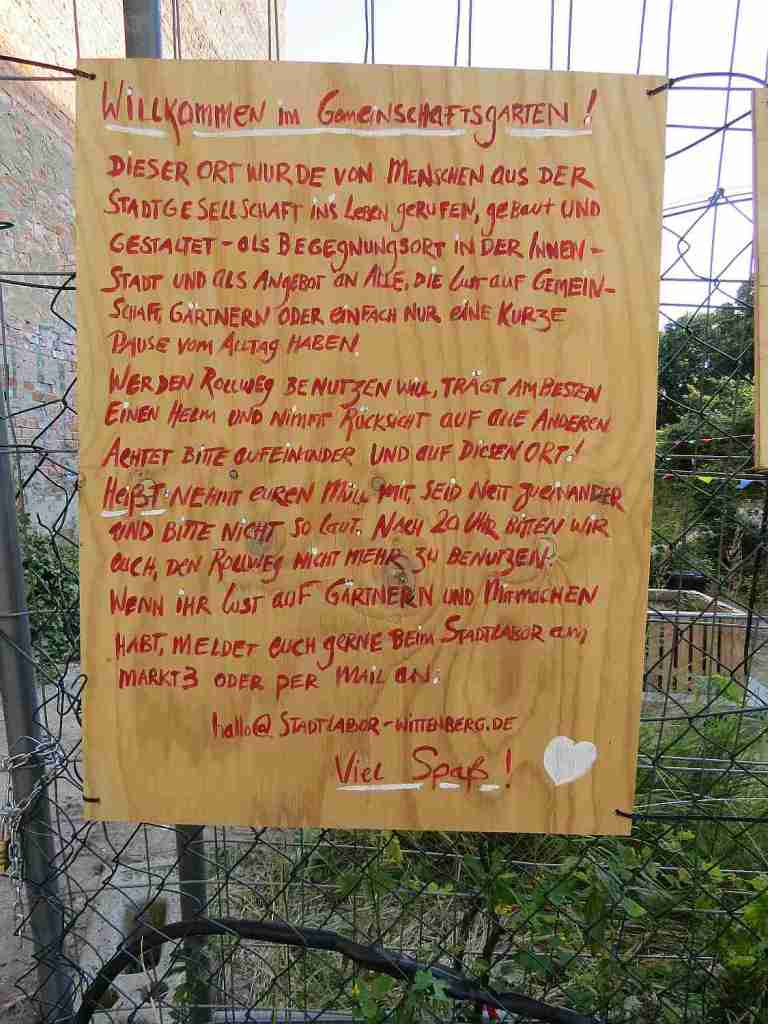 WILLKOMMEN im GEMEINSCHAFTSGARTEN!
DIESER ORT WURDE VON MENSCHEN AUS DER
STADTGESELLSCHAFT INS LEBEN GERUFEN, GEBAUT UND
GESTALTET - ALS BEGEGNUNGSORT IN DER INNEN-
STADT UND ALS ANGEBOT AN ALLE, DIE LUST AUF GEMEIN-
SCHAFT, GÄRTNERN ODER EINFACH NUR EINE KURZE
PAUSE VOM ALLTAG HABEN.
WER DEN ROLLWEG BENUTZEN WILL, TRÄGT AM BESTEN
EINEN HELM UND NIMMT RÜCKSICHT AUF ALLE ANDEREN.
ACHTET BITTE AUFEINANDER UND AUF DIESEN ORT!
HEIßT: NEHMT EUREN MÜLL MIT, SEID NETT ZUEINANDER
UND BITTE NICHT SO LAUT. NACH 20 UHR BITTEN WIR
EUCH, DEN ROLLWEG NICHT MEHR ZU BENUTZEN.
WENN IHR LUST AUF GÄRTNERN UND MITMACHEN
HABT, MELDET EUCH GERNE BEIM STADTLABOR AM
MARKT 3 ODER PER MAIL AN:
hallo@STADTLABOR-WITTENBERG.DE
VIEL SPAß!